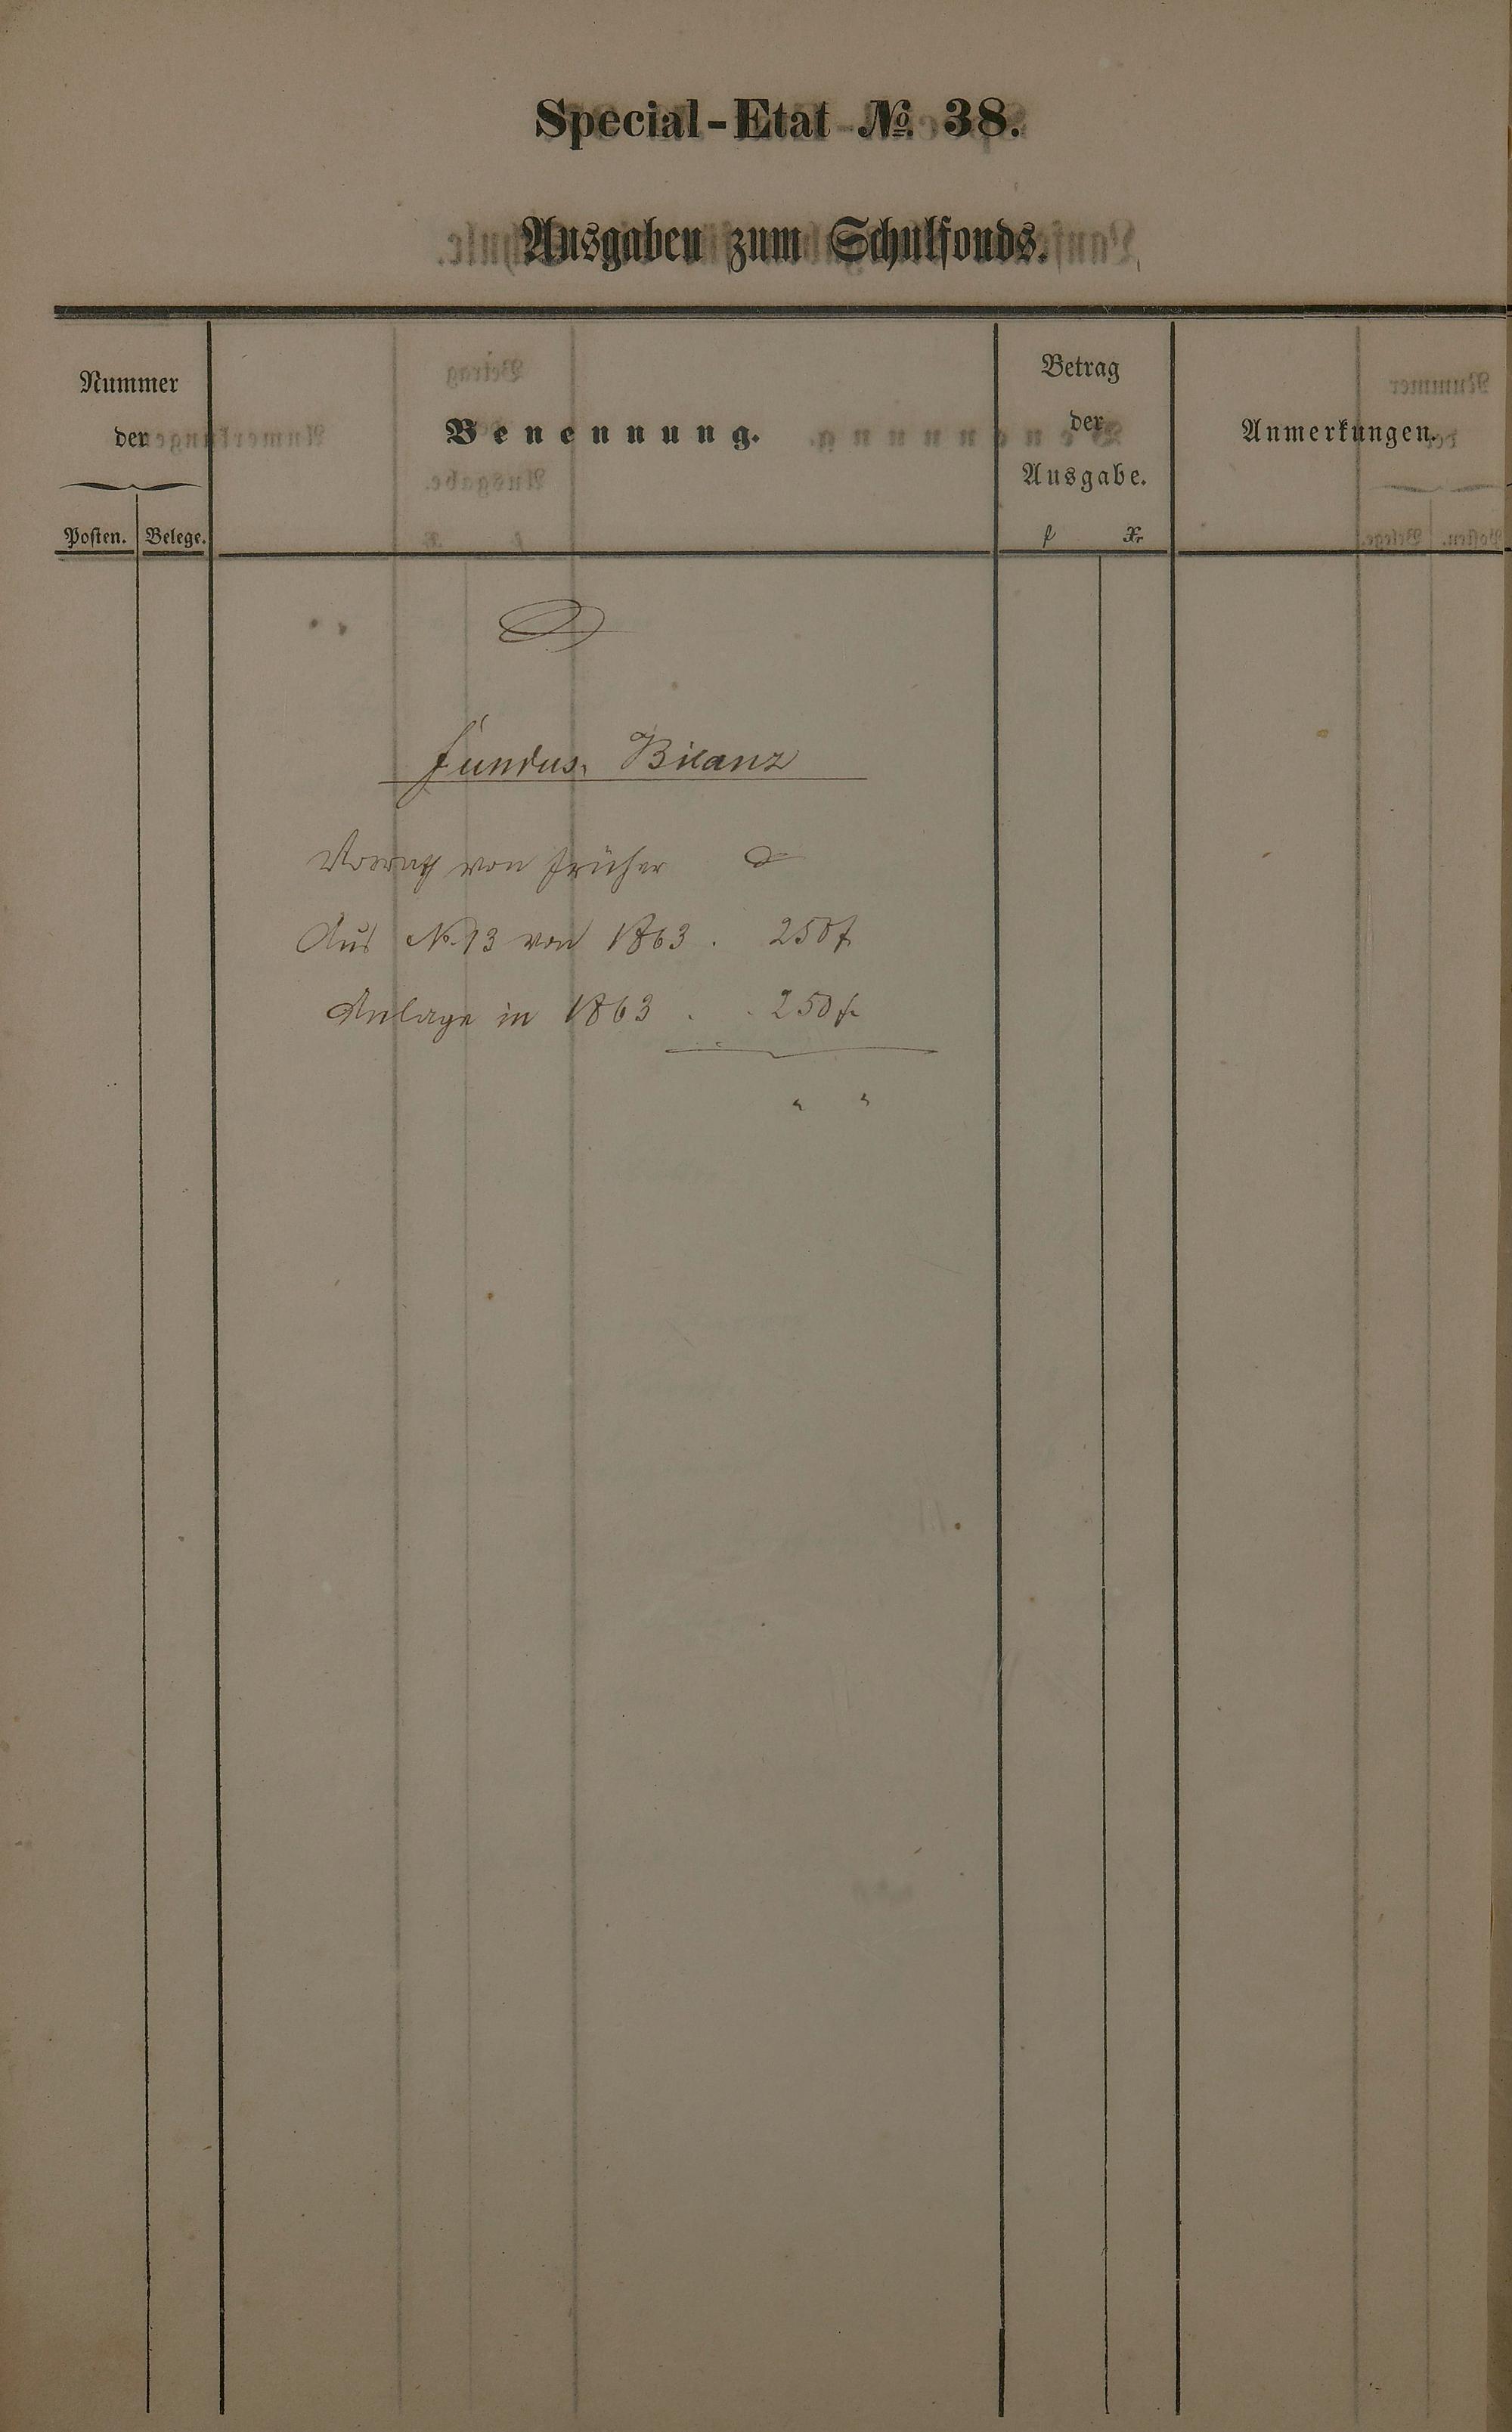 Special-Etat № 38.
Ausgaben zum Schulfonds.
Nummer
der
Posten.
Belege.
Benennung.
Betrag
der
Ausgabe.
f Xr
Anmerkungen.
Fundus. Bilanz
von früher
Aus No. 13 von 1863 . 250 f
Anlage in 1863 . . 250 f.
" "